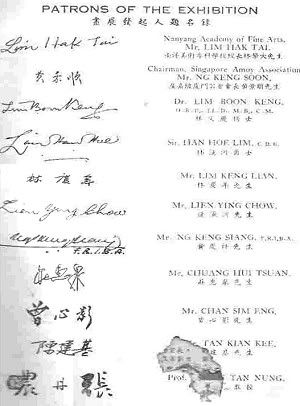 PATRONS OF THE EXHIBITION
畫展發起人題名錄
Lim Hak Tai
Nanyang Academy of Fine Arts,
Mr. LIM HAK TAI.
南洋美術專科學校校長林學大先生
Chairman, Singapore Amoy Association
Mr. NG KENG SOON,
Lim Boon Keng
Dr. LIM BOON KENG,
林文慶博士
Han Hoe Lim
Sir HAN HOE LIM, C.B.E.
林漢河爵士
林慶年
Mr. LIM KENG LIAN,
林慶年先生
Lien Ying Chow
Mr. LIEN YING CHOW,
連瀛洲先生
Ng Keng Siang
F.R.I.B.A.
Mr. NG KENG SIANG, F.R.I.B.A.
黃慶祥先生
莊惠泉
Mr. CHUANG HUI TSUAN,
莊惠泉先生
曾心影
Mr. CHAN SIM ENG,
曾心影先生
陳建基
TAN KIAN KEE,
Prof. TAN NUNG,